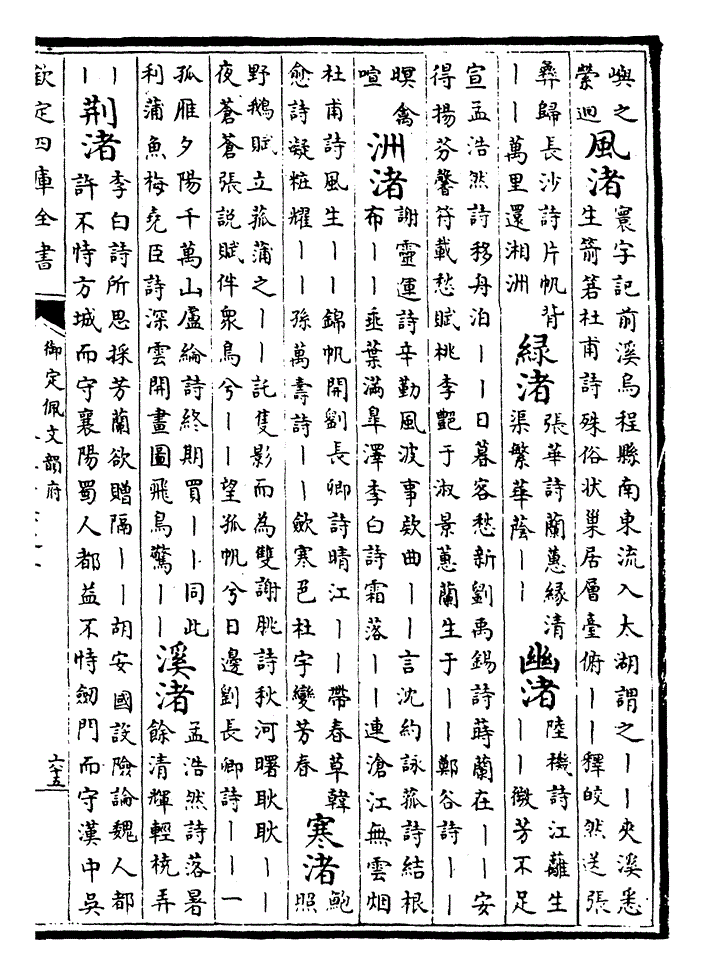 嶼之
縈迴
風渚
寰宇記前溪烏程縣南東流入太湖謂之丨丨夾溪悉
生箭箬杜甫詩殊俗狀巢居層臺俯丨丨釋皎然送張
彝歸長沙詩片帆背
丨丨萬里還湘洲
緑渚
張華詩蘭蕙縁清
渠繁華蔭丨丨
幽渚
陸機詩江蘺生
丨丨微芳不足
宣孟浩然詩移舟泊丨丨日暮客愁新劉禹錫詩蒔蘭在丨丨安
得揚芬馨符載愁賦桃李艷于淑景蕙蘭生于丨丨鄭谷詩丨丨
暝禽
喧
洲渚
謝靈運詩辛勤風波事欵曲丨丨言沈約詠菰詩結根
布丨丨垂葉滿皐澤李白詩霜落丨丨連滄江無雲烟
杜甫詩風生丨丨錦帆開劉長卿詩晴江丨丨帶春草韓
愈詩凝粧耀丨丨孫萬壽詩丨丨歛寒色杜宇變芳春
寒渚
鮑
照
野鵝賦立菰蒲之丨丨託隻影而為雙謝朓詩秋河曙耿耿丨丨
夜蒼蒼張説賦伴衆鳥兮丨丨望孤帆兮日邊劉長卿詩丨丨一
孤雁夕陽千萬山盧綸詩終期買丨丨同此
利蒲魚梅堯臣詩深雲開畫圖飛鳥驚丨丨
溪渚
孟浩然詩落暑
餘清輝輕橈弄
丨
丨
荆渚
李白詩所思採芳蘭欲贈隔丨丨胡安國設險論魏人都
許不恃方城而守襄陽蜀人都益不恃劒門而守漢中吳
欽定四庫全書
御定佩文韻府
六十五